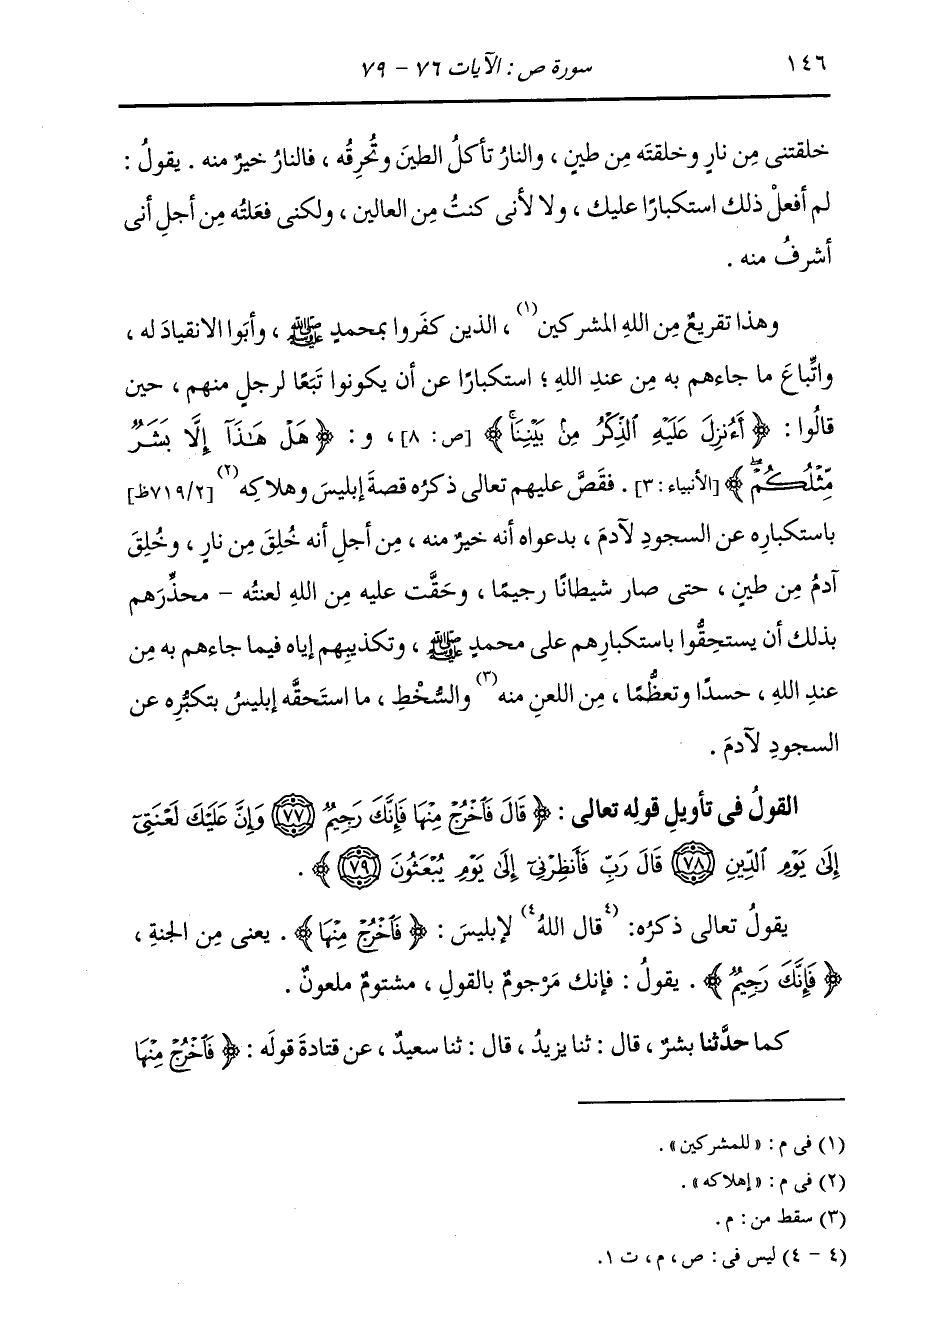 ١٤٦ سورة ص : الآيات ٧٦ - ٧٩
خلقتنى مِن نارٍ وخلقتَه مِن طينٍ ، والنارُ تأكلُ الطينَ وتُحرِقُه ، فالنارُ خيرٌ منه . يقولُ :
لم أفعلْ ذلك استكبارًا عليك ، ولا لأنى كنتُ مِن العالين ، ولكنى فعَلتُه مِن أجلِ أنى
أشرفُ منه .
وهذا تقريعٌ مِن اللهِ المشركين(١) ، الذين كفَروا بمحمدٍ ﷺ ، وأبَوا الانقيادَ له ،
واتِّباعَ ما جاءهم به مِن عندِ اللهِ ؛ استكبارًا عن أن يكونوا تَبَعًا لرجلٍ منهم ، حين
قالُوا : ﴿ أَءُنزِلَ عَلَيْهِ ٱلذِّكْرُ مِنۢ بَيْنِنَاۚ ﴾ [ص: ٨] ، و : ﴿ هَلْ هَٰذَآ إِلَّا بَشَرٌ
مِّثْلُكُمْۖ ﴾ [الأنبياء : ٣] . فقَصَّ عليهم تعالى ذكرُه قصةَ إبليسَ وهلاكِه(٢) [٧١٩/٢ظ]
باستكبارِه عن السجودِ لآدمَ ، بدعواه أنه خيرٌ منه ، مِن أجلِ أنه خُلِقَ مِن نارٍ ، وخُلِقَ
آدمُ مِن طينٍ ، حتى صار شيطانًا رجيمًا ، وحَقَّت عليه مِن اللهِ لعنتُه - محذِّرَهم
بذلك أن يستحِقُّوا باستكبارِهم على محمدٍ ﷺ ، وتكذيبِهم إياه فيما جاءهم به مِن
عندِ اللهِ ، حسدًا وتعظُّمًا ، مِن اللعنِ منه(٣) والسُّخْطِ ، ما استَحقَّه إبليسُ بتكبُّرِه عن
السجودِ لآدمَ .
القولُ فى تأويلِ قولِه تعالى : ﴿ قَالَ فَٱخْرُجْ مِنْهَا فَإِنَّكَ رَجِيمٌ ۝٧٧ وَإِنَّ عَلَيْكَ لَعْنَتِىٓ
إِلَىٰ يَوْمِ ٱلدِّينِ ۝٧٨ قَالَ رَبِّ فَأَنظِرْنِىٓ إِلَىٰ يَوْمِ يُبْعَثُونَ ۝٧٩ ﴾ .
يقولُ تعالى ذكرُه: (٤قال اللهُ٤) لإبليسَ : ﴿ فَٱخْرُجْ مِنْهَا ﴾ . يعنى مِن الجنةِ ،
﴿ فَإِنَّكَ رَجِيمٌ ﴾ . يقولُ : فإنك مَرْجومٌ بالقولِ ، مشتومٌ ملعونٌ .
كما حدَّثنا بشرٌ ، قال : ثنا يزيدُ ، قال : ثنا سعيدٌ ، عن قتادةَ قولَه : ﴿ فَٱخْرُجْ مِنْهَا
(١) فى م : «للمشركين» .
(٢) فى م : «إهلاكه» .
(٣) سقط من : م .
(٤ - ٤) ليس فى : ص ، م ، ت ١.